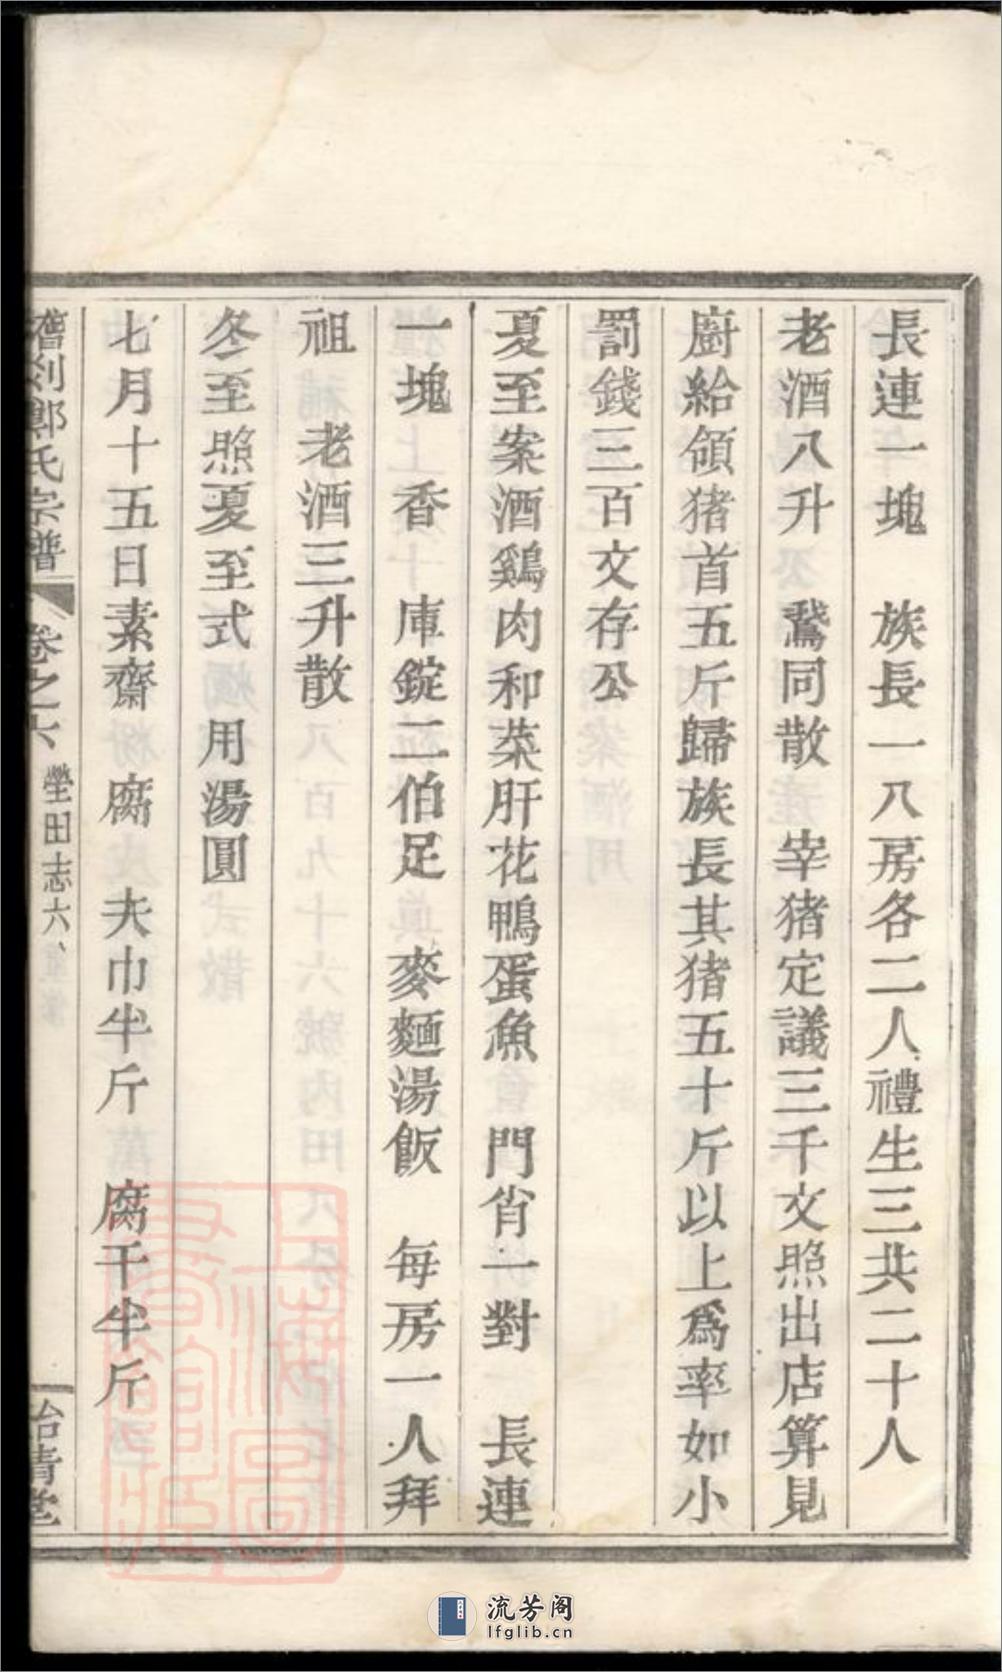 長連一塊　族長一八房各二人禮生三共二十人
老酒八升　鵞同散　宰猪定議三千文照出店算見
廚給領猪首五斤歸族長其猪五十斤以上爲率如小
罰錢三百文存公
夏至案酒鷄肉和菜肝花鴨蛋魚　門宵一對　長連
一塊　香　庫錠二伯足　麥麵湯飯　每房一人拜
祖　老酒三升散
冬至照夏至式　用湯圓
七月十五日素齋　腐　夫巾半斤　腐干半斤
剡鄭氏宗譜　卷之六　塋田志六、
流芳阁
lfglib.cn